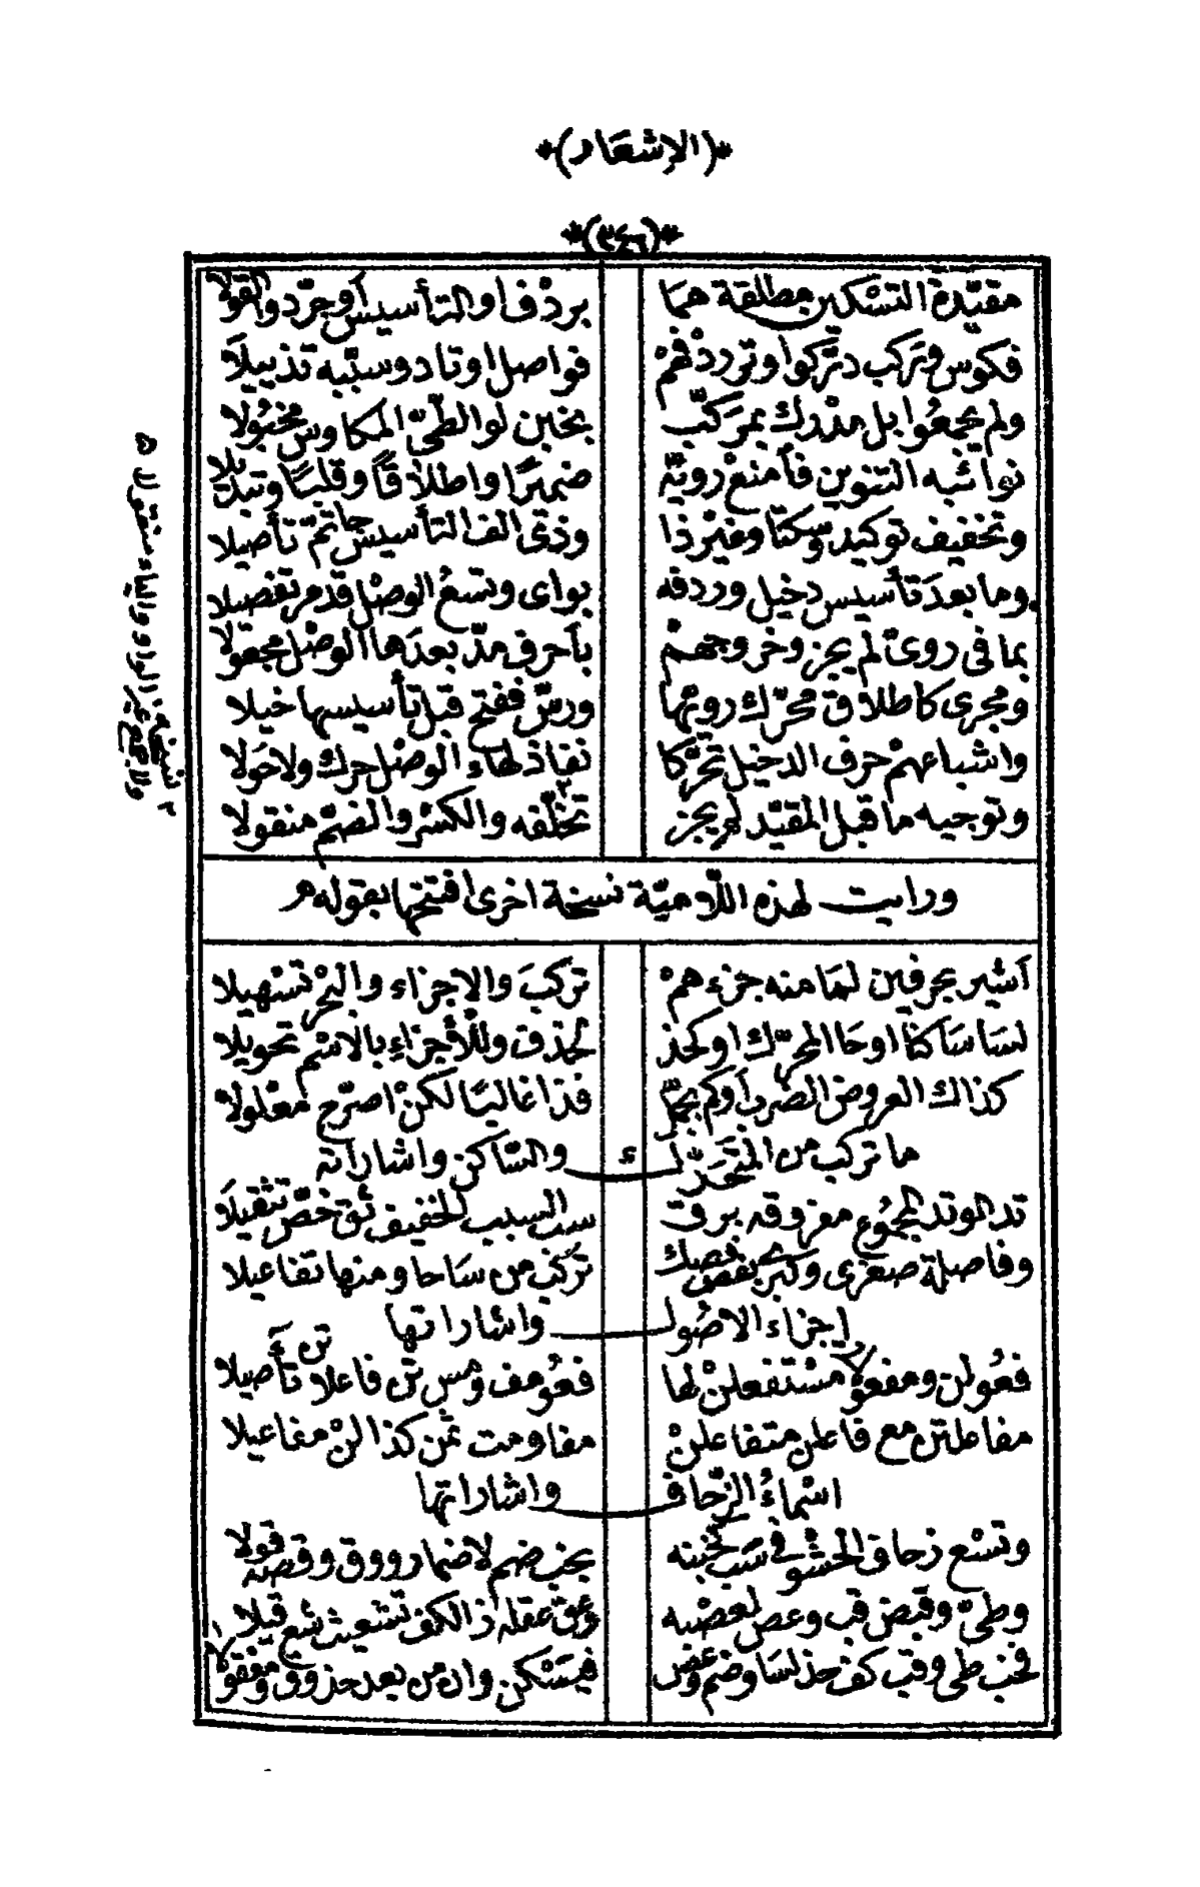 *(الإشعار)*
*(٣٤٦)*
مقيّدة التسْكين مطلقة همَا بردْف او التأسيس أو جرّد والقولا
فكوس وتركب دتّركوا وتر ردْفهمْ فواصل اوتاد وسبّبه تذييلَا
ولم يجمعُوا بل مدْرك بمركّب بخبن لو الطّىّ المكاوس مخبُولا
نوائبه التنوين فأمنعْ رويّه ضميرًا واطلاقًا وقلبًا وتبديلا
وتخفيف توكيد وسكتًا وغيْر ذا وذى الف التأسيس جا تمّ تأصيلا
وما بعدَ تأسيس دخيل وردفه بواى وتسعُ الوصْل قدمر تفصيلا
بما فى روىّ لم يجز وخروجهمْ بأحرف مدّ بعدَها الوصْل مجعولا
ومجرى كاطلاق محرّك رويّها ورسّ ففتح قبل تأسيسها خيلا
واشباعهمْ حرف الدخيل تحرّكا نفاذ لهاء الوصْل حرك ولا حَولا
وتوجيه ما قبل المقيّد لم يجز تخلّفه والكسْر والضمّ منقولا
ورايت لهذه اللّاميّة نسخة اخرى افتتحها بقوله م
أشير بحرفين لما منه جزء همْ تركبَ والاجزاء والبحْر تسْهيلا
لسَاسَاكنًا اوحَا المحرّك او كحذ لحذف وللأجزاءِ بالاسْم تحويلا
كذاك العروض الضرب او لم يجرّ فذا غالبًا لكنْ اصرّح معْلولا
ما تركب من المتحرّك والسّاكن واشاراته
تد الوتد المجمُوع مفروقه برق سب السبب الخفيف ثق خصّ تثقيلَا
وفاصلة صغرى وكبرى بفصك تركّب من سَاحا ومنها تفاعيلا
اجزاء الاصُول واشاراتها
فعُولن ومفعولا مسْتفعلنْ لها فعُو مف ومس تن فاعلا تن تأصيلا
مفاعلتن مع فاعلن متفاعلنْ مفا ومت ثمن كذا لنْ مفاعيلا
اسْماءُ الزّحاف واشاراتها
وتسْع زحاف الحشْو فى سَبب كخبنه بخب ضم لاضمار ووق وقصه قولا
وطىّ وقبض قب وعص لعصْبه وعق عقله ذا الكف تشعيث شع قيلا
فخب طى وقب كف حذ لسَا وضم وعص فيسَكن وان من بعد حذ وق وعق